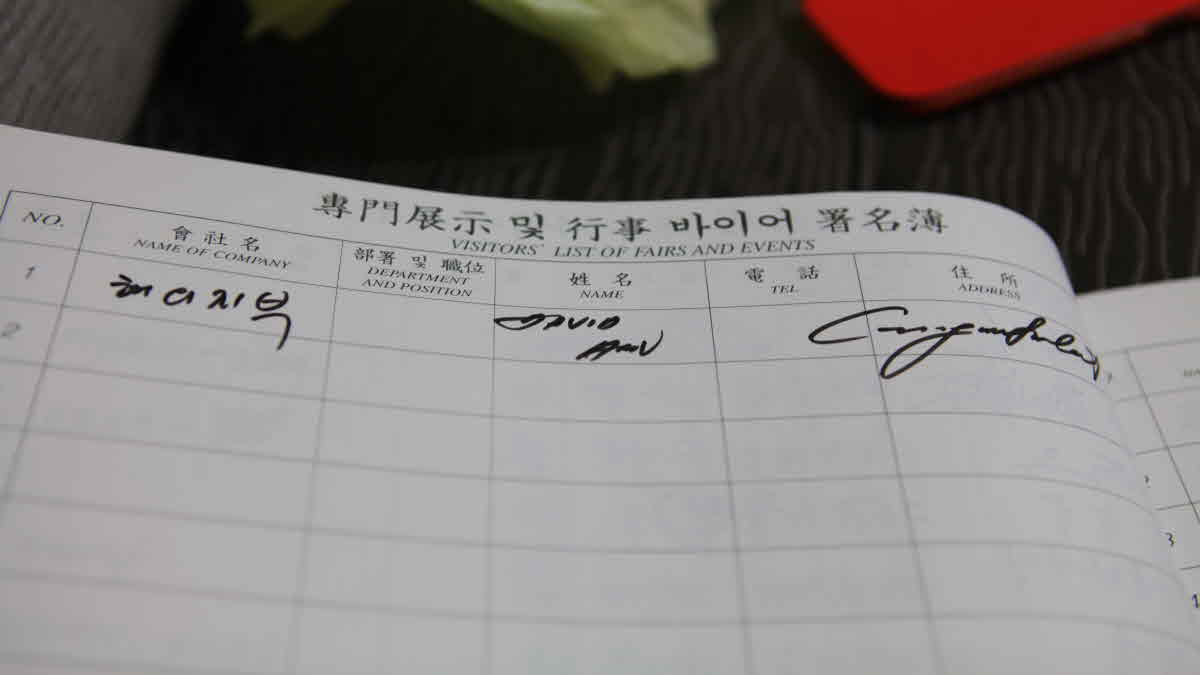 專門展示 및 行事 바이어 署名簿
VISITORS' LIST OF FAIRS AND EVENTS
NO.
會社名
NAME OF COMPANY
部署 및 職位
DEPARTMENT
AND POSITION
姓名
NAME
電話
TEL
住所
ADDRESS
1
DAVID
2
2
3